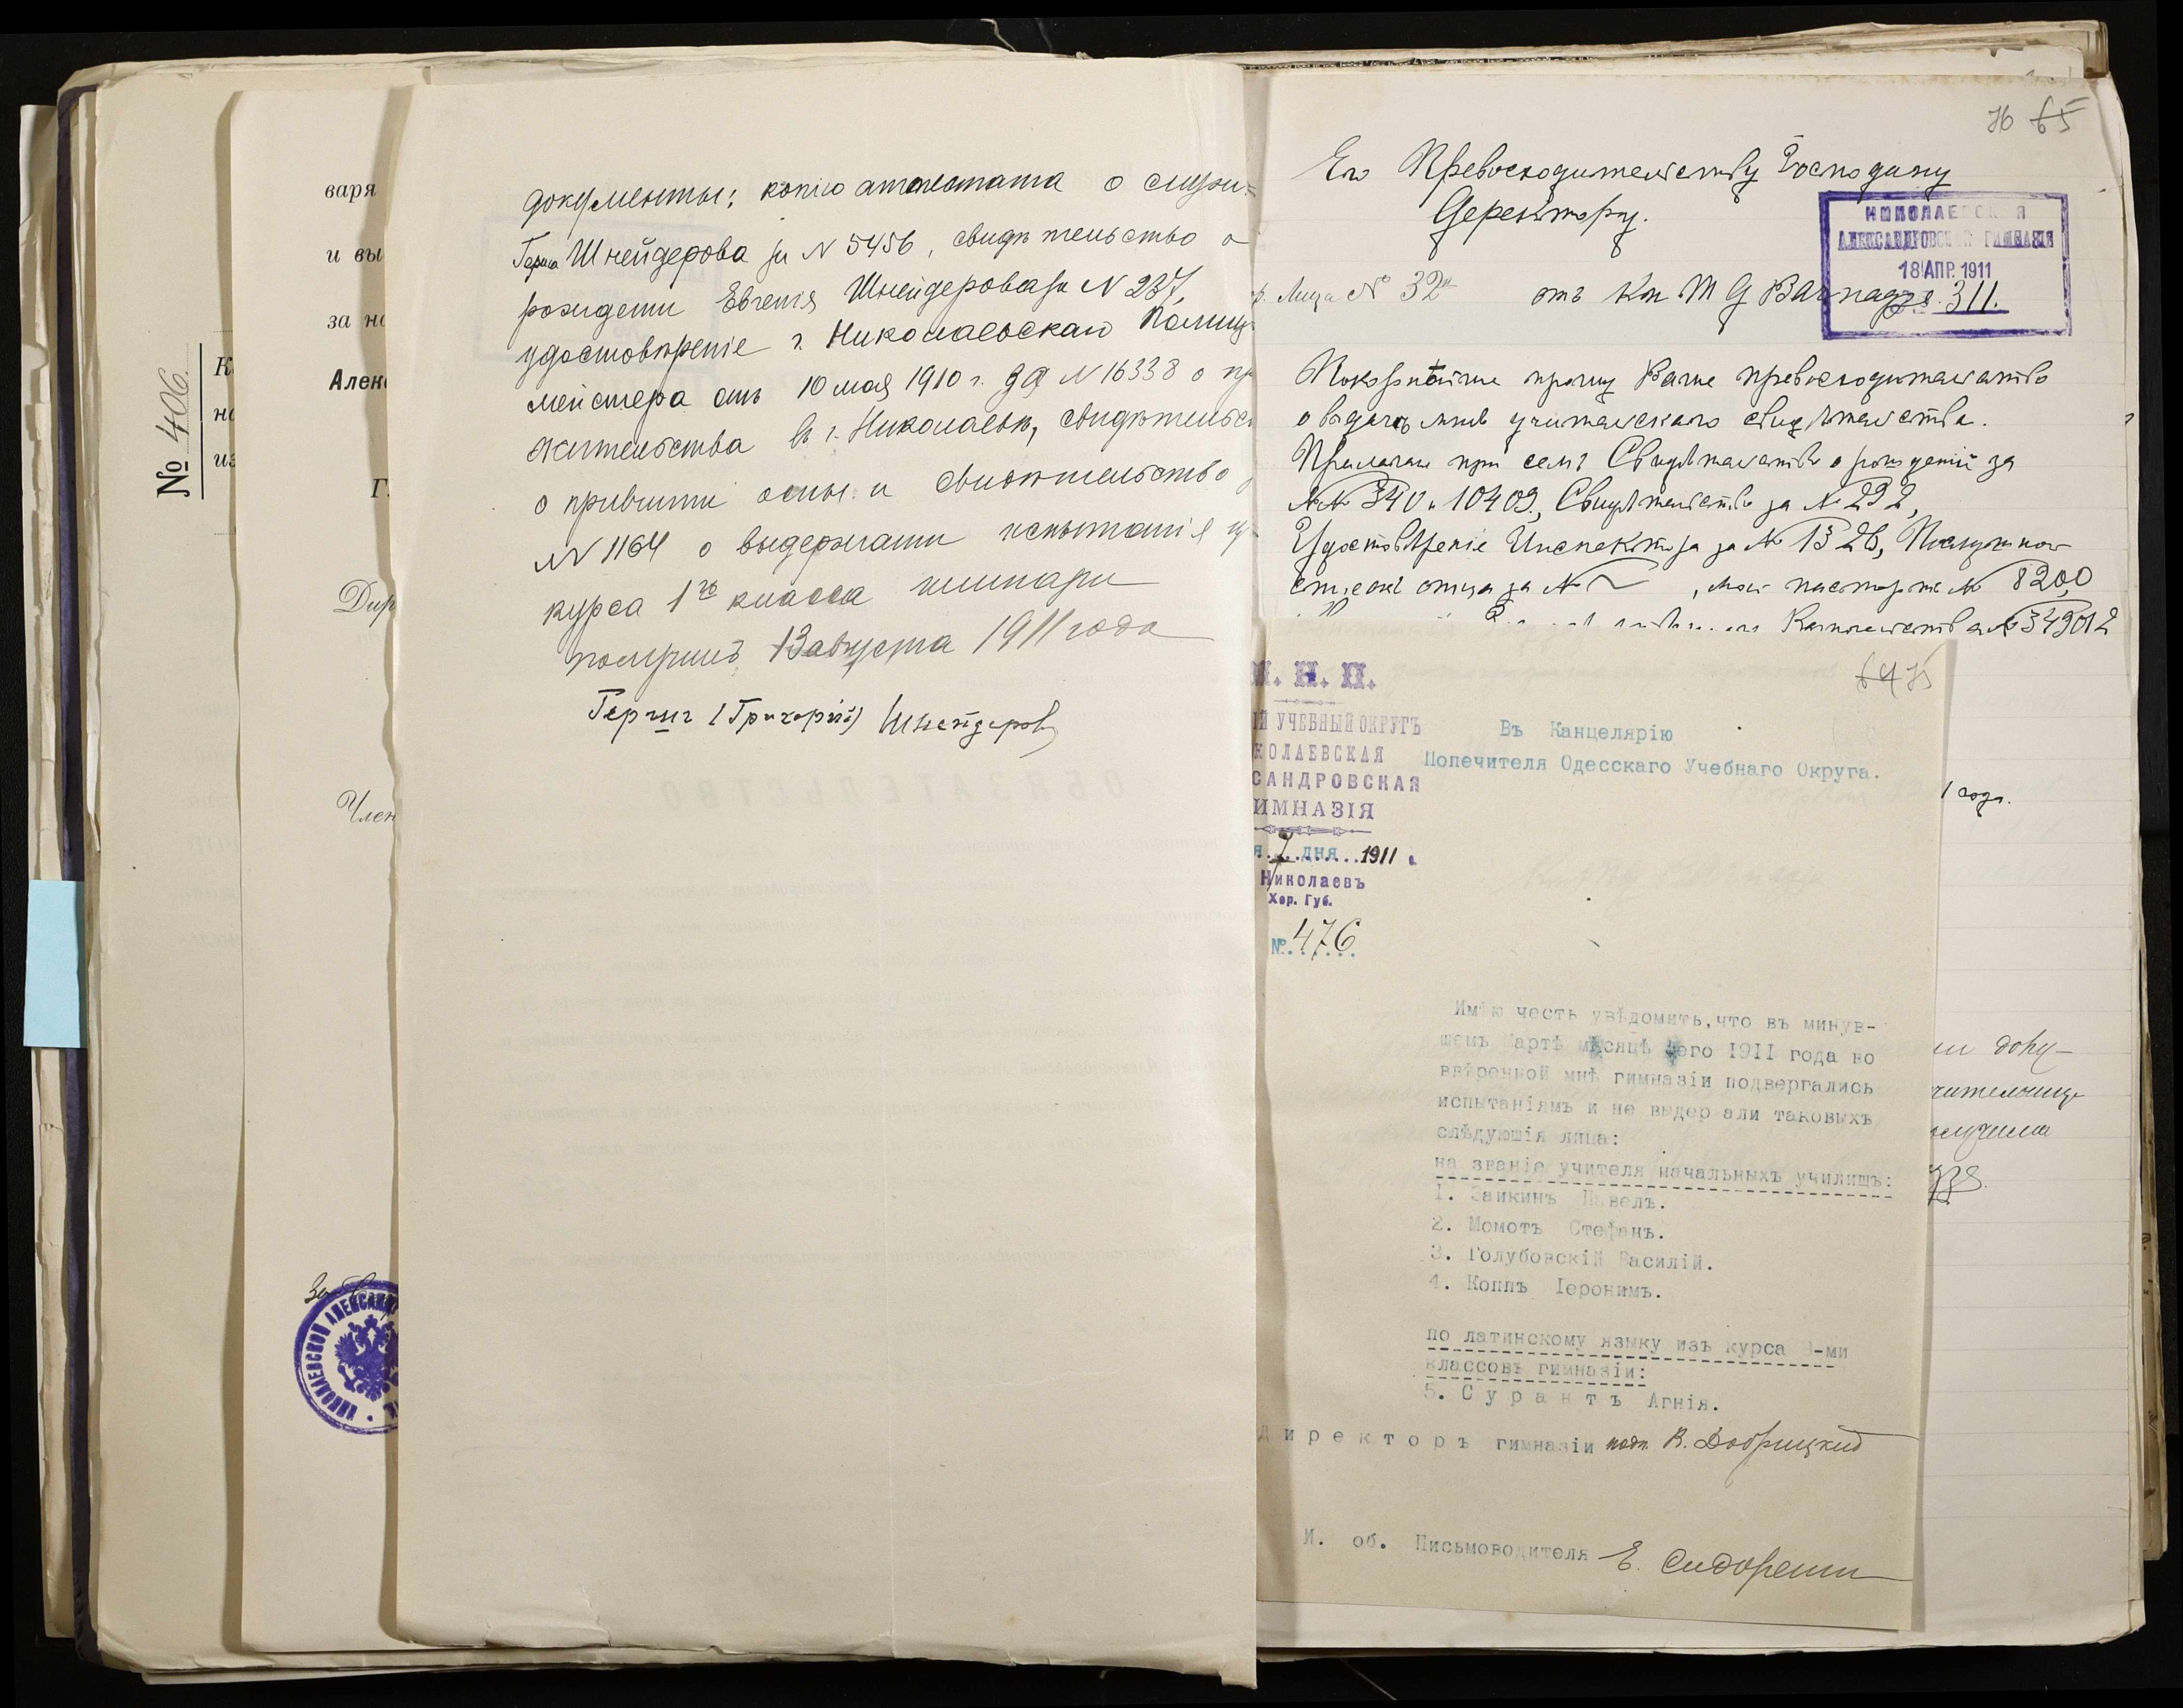 варя
и вы
за но
Алекс
№ 406.
К
но
из
Г.
Дир
Член
документы: копію аттестата о служ=
Герша Шнейдерова за N 5456, свидѣтельство о
рожденіи Евгенія Шнейдерова за N 237,
удостовѣреніе г. Николаевскаго Полиц
мейстера отъ 10 мая 1910 г. за N 16338 о пр
жительства въ г. Николаевѣ, свидѣтельс
о привитіи оспы и свидѣтельство
N 1164 о выдержаніи испытанія изъ
курса 1го класса гимназіи
получилъ 13 августа 1911 года
Гершъ (Григорій) Шнейдеровъ
76 65
Его Превосходительству Господину
Деректору.
НИКОЛАЕВСКАЯ
АЛЕКСАНДРОВСКАЯ ГИМНАЗІЯ
18 АПР. 1911
311.
Лица № 32 отъ Кн М Д Вачнадзе
Покорнѣйше прошу Ваше превосходительство
о выдачѣ мнѣ учительскаго свидѣтельства.
Прилагаю при семъ Свидѣтельство о рожденіи за
№№ 340 и 10409, Свидѣтельство за № 292,
Удостовѣреніе Инспектора за № 1328, Послужной
списокъ отца за № , мой паспортъ № 8200,
№ 34901
М. Н. П.
ІЙ УЧЕБНЫЙ ОКРУГЪ
КОЛАЕВСКАЯ
САНДРОВСКАЯ
ИМНАЗІЯ
я 7 дня 1911 г.
Николаевъ
Хер. Губ.
№ 476
64 75
Въ Канцелярію
Попечителя Одесскаго Учебнаго Округа.
Имѣю честь увѣдомить, что въ минув-
шемъ Мартѣ мѣсяцѣ сего 1911 года во
ввѣренной мнѣ гимназіи подвергались
испытаніямъ и не выдержали таковыхъ
слѣдующія лица:
на званіе учителя начальныхъ училищъ:
1. Заикинъ Павелъ.
2. Момотъ Стефанъ.
3. Голубовскій Василій.
4. Коппъ Іеронимъ.
по латинскому языку изъ курса 8-ми
классовъ гимназіи:
5. Сурантъ Агнія.
Директоръ гимназіи подп. В. Добрицкій
И. об. Письмоводителя Е. Сидоренко
1 года.
ОБЯЗАТЕЛЬСТВО
НИКОЛАЕВСКОЙ АЛЕКСАН